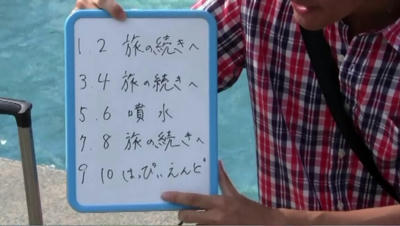 1.2 旅の続きへ
3.4 旅の続きへ
5.6 噴水
7.8 旅の続きへ
9 10 はっぴぃえんど